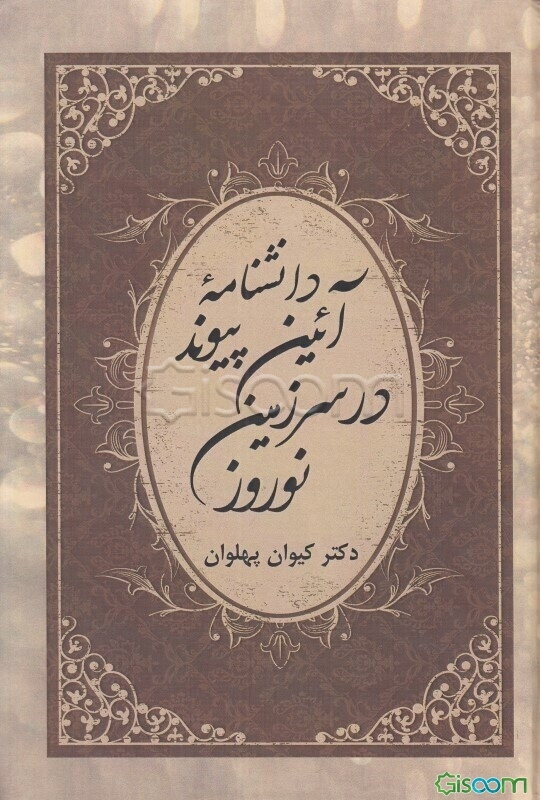 Gisoom
دانشنامهٔ
آئین پیوند
در سرزمین
نوروز
Gisoom
دکتر کیوان پهلوان
Gisoom